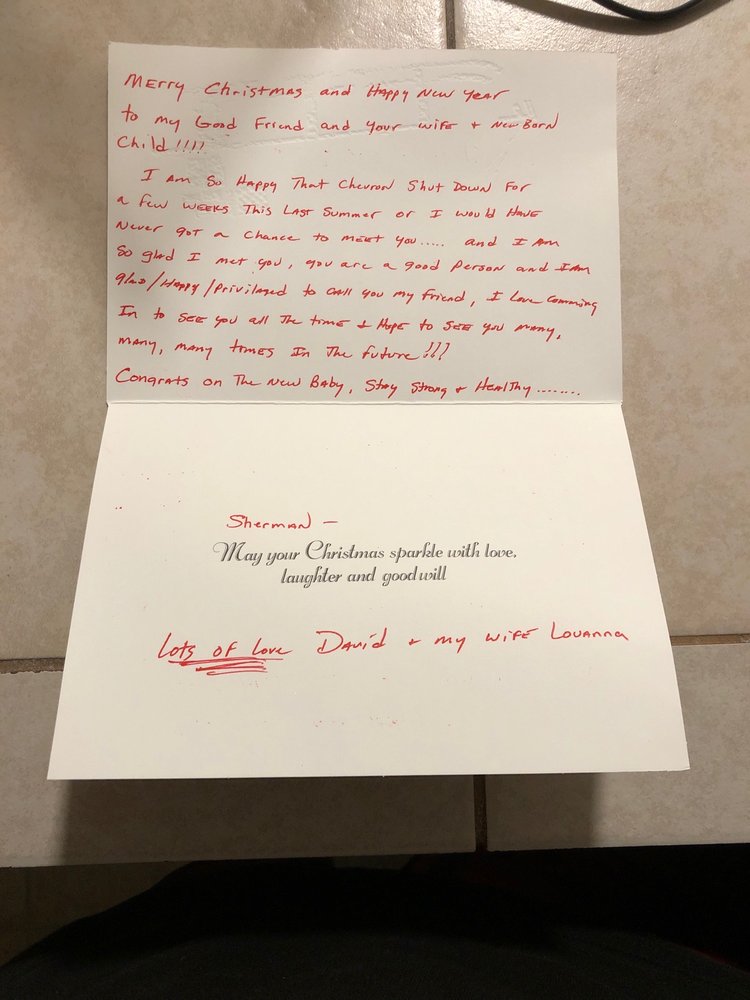 Merry Christmas and Happy New Year
to my Good Friend and your wife + New Born
Child!!!!
I am so Happy That Chevron Shut Down For
a few weeks This Last Summer or I would Have
Never got a chance to meet you..... and I am
So glad I met you, you are a good person and I am
glad/Happy/privilaged to call you my friend, I love comming
In to see you all The time + Hope to see you many,
many, many times In The future!!!
Congrats on The New Baby, Stay Strong + Healthy........
Sherman —
May your Christmas sparkle with love,
laughter and goodwill
Lots of love David + my wife Louanna